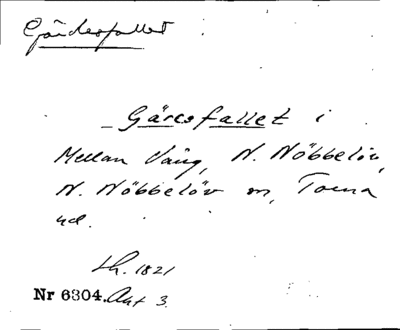 Gärdesfallet
Gäresfallet i
Mellan Vång, N. Nöbbelöv,
N. Nöbbelöv sn, Torna
hd.
Lh. 1821
Nr 6304. Akt 3.